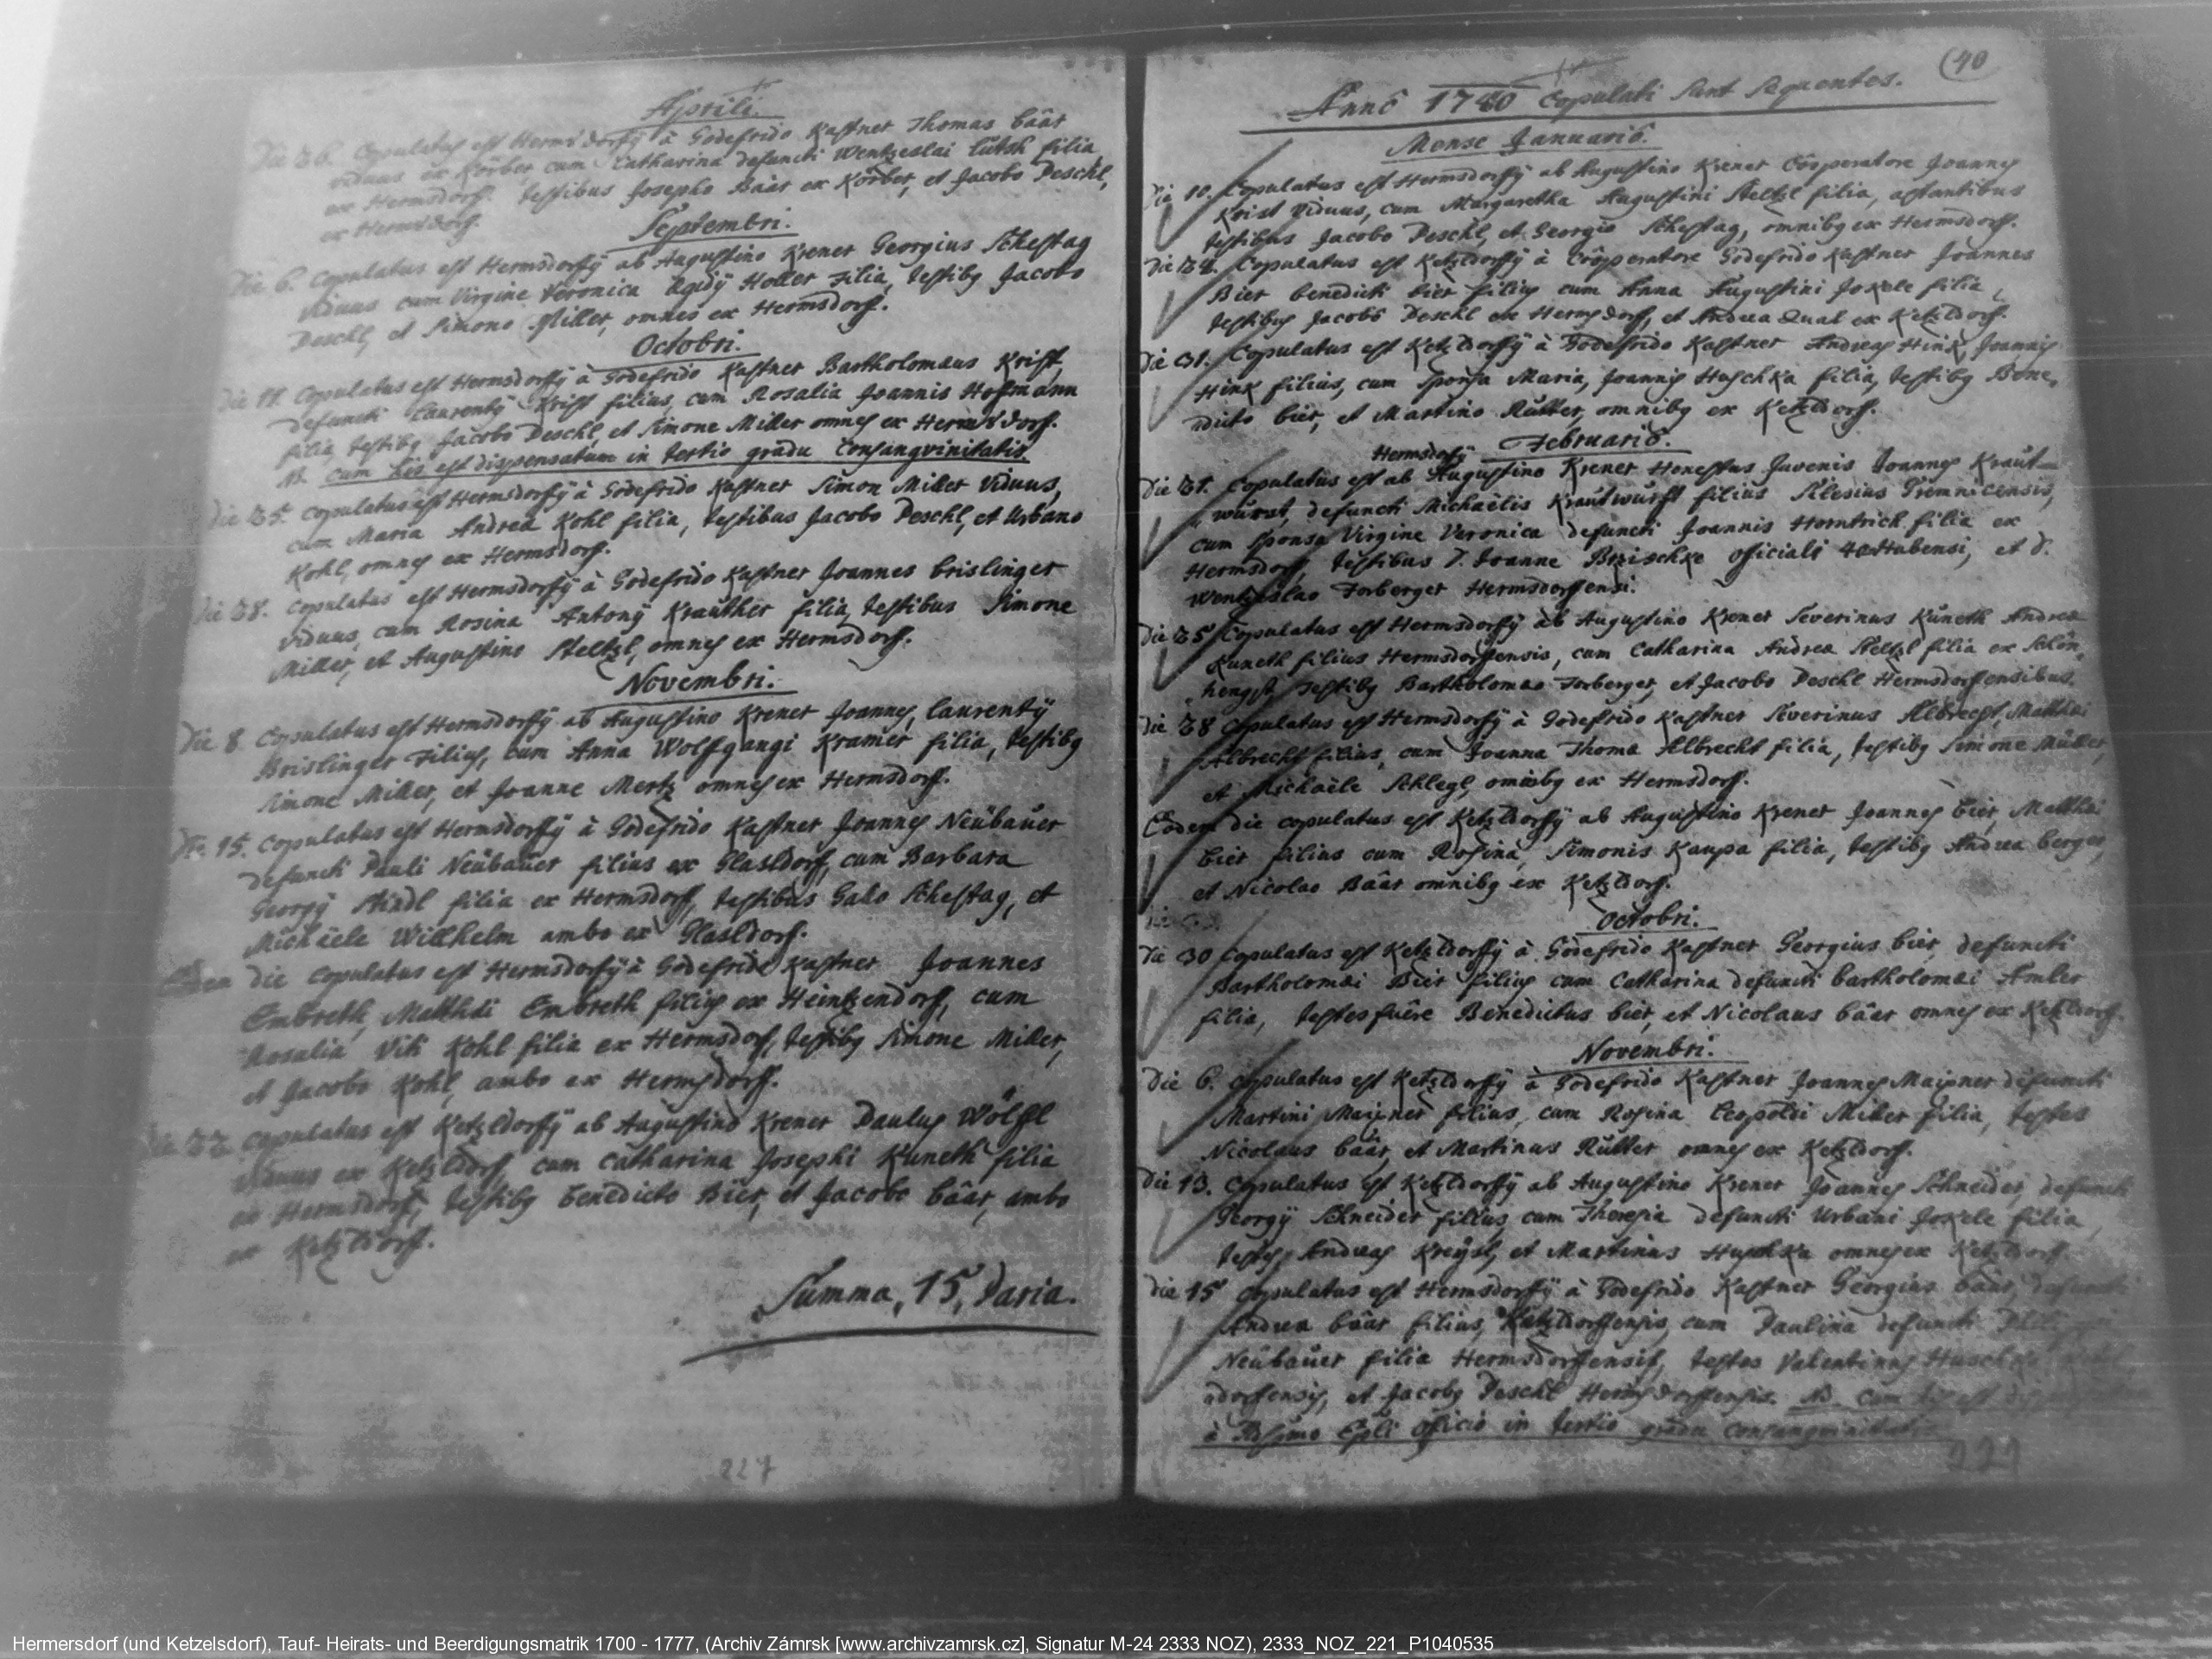 Aprili.
Die 26. Copulatus est Hermsdorffÿ à Godefrido Kastner Thomas Bâar
viduus ex Körber cum Catharina defuncti Wentzeslai Lutsch filia
ex Hermsdorff. testibus Josepho Bâar ex Körber, et Jacobo Deschl,
ex Hermsdorff.
Septembri.
Die 6. Copulatus est Hermsdorffÿ ab Augustino Krener Georgius Schestag
viduus cum Virgine Veronica Egidÿ Holler Filia, testibg Jacobo
Deschl, et Simone Miller, omnes ex Hermsdorff.
Octobri.
Die 11. Copulatus est Hermsdorffÿ à Godefrido Kastner Bartholomæus Krist,
defuncti Laurentÿ Krist filius, cum Rosalia Joannis Hofmann
filia, testibg Jacobo Deschl, et Simone Miller omnes ex Hermsdorf.
NB. cum his est dispensatum in tertio gradu Consangvinitatis
Die 25. Copulatus est Hermsdorffÿ à Godefrido Kastner Simon Miller Viduus,
cum Maria Andreæ Kohl filia, testibus Jacobo Deschl, et Urbano
Kohl, omnes ex Hermsdorff.
Die 28. Copulatus est Hermsdorffÿ à Godefrido Kastner Joannes brislinger
viduus, cum Rosina Antonÿ Krauther filia, testibus Simone
Miller, et Augustino Steltzl, omnes ex Hermsdorff.
Novembri.
Die 8. Copulatus est Hermsdorffÿ ab Augustino Krener Joannes, Laurentÿ
Brislinger Filius, cum Anna Wolfgangi Kramer filia, testibg
Simone Miller, et Joanne Mertz omnes ex Hermsdorff.
Die 15. Copulatus est Hermsdorffÿ à Godefrido Kastner Joannes Neübaüer
defuncti Pauli Neübaüer filius ex Glasldorff, cum Barbara
Georgÿ filia ex Hermsdorff, testibus Gallo Schestag, et
Michäele Willhelm ambo ex Glasldorff.
Eodem die Copulatus est Hermsdorffÿ à Godefrido Kastner Joannes
Embreth, Matthæi Embreth filius ex Heintzendorff, cum
Rosalia Viti Kohl filia ex Hermsdorff, testibg Simone Miller,
et Jacobo Kohl, ambo ex Hermsdorff.
Die 22. Copulatus est Ketzldorffÿ ab Augustino Krener Paulus Wölfl
viduus ex Ketzldorff, cum Catharina Josephi Kuneth filia
ex Hermsdorff, testibg Benedicto Bier, et Jacobo bâar, ambo
ex Ketzldorff.
Summa, 15, Paria.
227
(40
Annô 1740 Copulati sunt Sequentes.
Mense Januariô.
Die 10. Copulatus est Hermsdorffÿ ab Augustino Krener Côoperatore Joannes
Krist Viduus, cum Margaretha Augustini Steltzl filia, astantibus
testibus Jacobo Deschl, et Georgio Schestag, omnibg ex Hermsdorff.
Die 24. Copulatus est Ketzldorffÿ à Côoperatore Godefrido Kastner Joannes
Bier benedicti bier filius cum Anna Augustini Jokele filia,
testibus Jacobô Deschl ex Hermsdorff, et Andrea Qual ex Ketzldorff.
Die 31. Copulatus est Ketzldorffÿ à Godefrido Kastner Andreas Hink, Joannis
Hink filius, cum Sponsa Maria, Joannis Huschka filia, testibg Bene,
dicto bier, et Martino Rutter, omnibg ex Ketzldorff.
Februariô.
Hermsdorffÿ
Die 21. Copulatus est ab Augustino Krener Honestus Juvenis Joannes Kraut
wurst, defuncti Michaëlis Krautwurst filius Silesius Gremnicensis,
cum sponsa Virgine Veronica defuncti Joannis Horntrich filia ex
Hermsdorff, testibus D. Joanne Brzischke officiali 40Hubensi, et D.
Wentzeslao Forberger Hermsdorffensi.
Die 25 Copulatus est Hermsdorffÿ ab Augustino Krener Severinus Kuneth Andreæ
Kuneth filius Hermsdorffensis, cum Catharina Andreæ Steltzl filia ex Schön,
hengst, testibg Bartholomæo Forberger, et Jacobo Deschl Hermsdorffensibus.
Die 28 Copulatus est Hermsdorffÿ à Godefrido Kastner Severinus Albrecht, Matthæi
Albrecht filius, cum Joanna Thomæ Albrecht filia, testibg Simone Müller,
et Michaële Schlegl, omnibg ex Hermsdorff.
Eodem die copulatus est Ketzldorffÿ ab Augustino Krener Joannes bier, Matthæi
bier filius cum Rosina, Simonis Kaupa filia, testibg Andrea berger,
et Nicolao Bâar omnibg ex Ketzldorff.
Octobri.
Die 30 Copulatus est Ketzldorffÿ à Godefrido Kastner Georgius bier, defuncti
Bartholomæi Bier filius cum Catharina defuncti bartholomæi Amler
filia, testes fuêre Benedictus bier, et Nicolaus bâar omnes ex Ketzldorff.
Novembri.
Die 6. Copulatus est Ketzldorffÿ à Godefrido Kastner Joannes Maixner defuncti
Martini Maixner filius, cum Rosina Leopoldi Miller filia, testes
Nicolaus bâar, et Martinus Rutter omnes ex Ketzldorff.
Die 13. Copulatus est Ketzldorffÿ ab Augustino Krener Joannes Schneider, defuncti
Georgÿ Schneider filius, cum Theresia defuncti Urbani Jokele filia,
testes, Andreas Kreÿsl, et Martinus Huschka omnes ex Ketzldorff.
Die 15 Copulatus est Hermsdorffÿ à Godefrido Kastner Georgius bâar, defuncti
Andreæ bâar filius, Ketzldorffensis, cum Paulina defuncti
Neübaüer filia Hermsdorffensis, testes Valentinus Huschka
dorffensis, et Jacobg Deschl Hermsdorffensis. NB. cum his est
à officio in tertio gradu consangvinitatis
Hermersdorf (und Ketzelsdorf), Tauf- Heirats- und Beerdigungsmatrik 1700 - 1777, (Archiv Zámrsk [www.archivzamrsk.cz], Signatur M-24 2333 NOZ), 2333_NOZ_221_P1040535